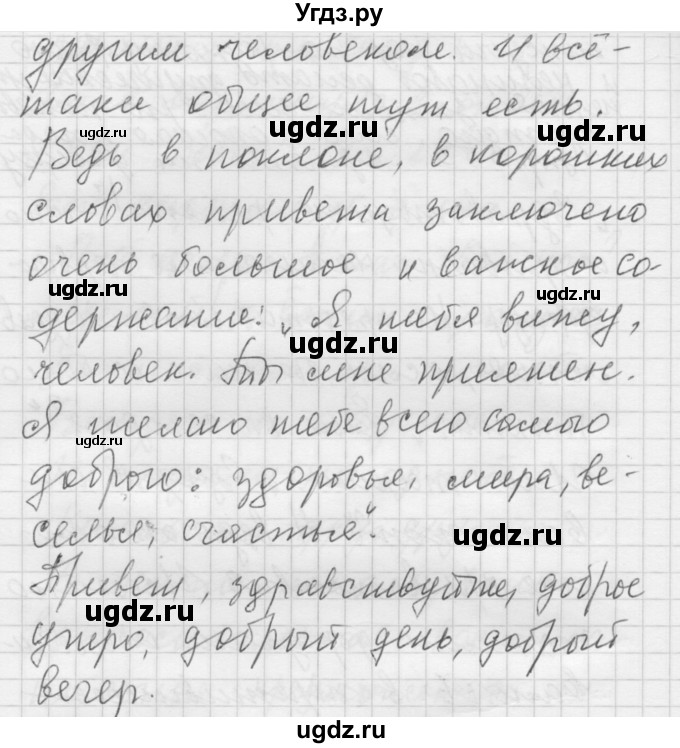 Угдз.ру
другим человеком. И всё-
таки общее тут есть.
Ведь в поклоне, в коротких
словах привета заключено
очень большое и важное со-
держание: „Я тебя вижу,
человек. Ты мне приятен.
Я желаю тебе всего самого
доброго: здоровья, мира, ве-
селья, счастья".
Привет, здравствуйте, доброе
утро, добрый день, добрый
вечер.
ugdz.ru
ugdz.ru
ugdz.ru
ugdz.ru
ugdz.ru
ugdz.ru
ugdz.ru
ugdz.ru
ugdz.ru
ugdz.ru
ugdz.ru